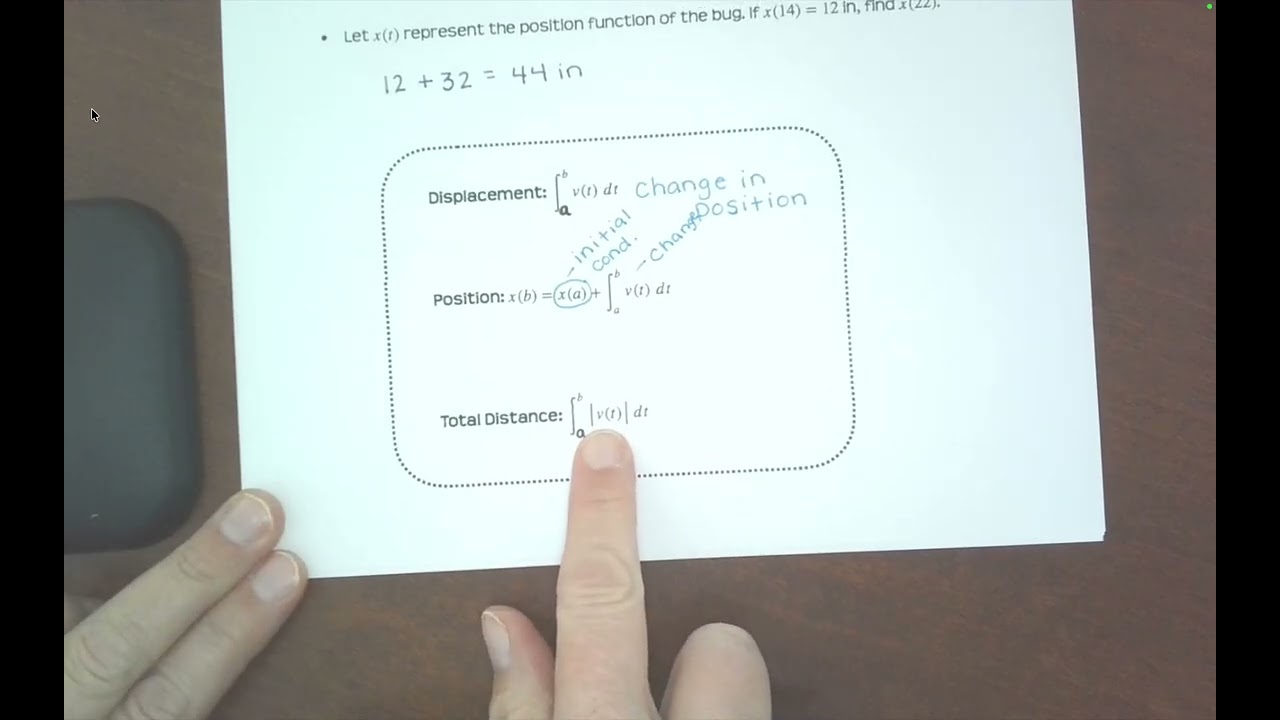 • Let x(t) represent the position function of the bug. If x(14) = 12 in, find x(22).
12 + 32 = 44 in
Displacement: ∫_a^b v(t) dt Change in
Position
– initial
cond.
– change
Position: x(b) = x(a) + ∫_a^b v(t) dt
Total Distance: ∫_a^b |v(t)| dt